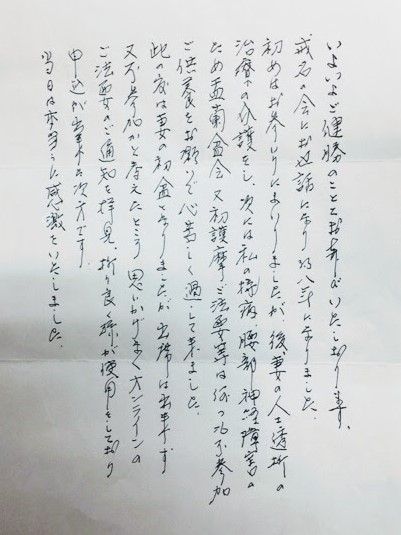 いよいよご健勝のこととお喜びいたしおります。
戒名の会にお世話になり 八年になりました。
初めはお参りにまいりましたが、後、妻の人工透析の
治療での介護をし、次には私の持病 腰部 神経障害の
ため盂蘭盆会 又 初護摩ご法要等は何つも不参加
ご供養をお願いで心苦しく過して来ました。
此の度は妻の初盆となりましたが 出席は出来ず
又不参加かと考えたところ 思いがけなくオンラインの
ご法要のご通知を拝見、折り良く 使用をしており
申込が出来た次方です。
当日は本当うに感激をいたしました。